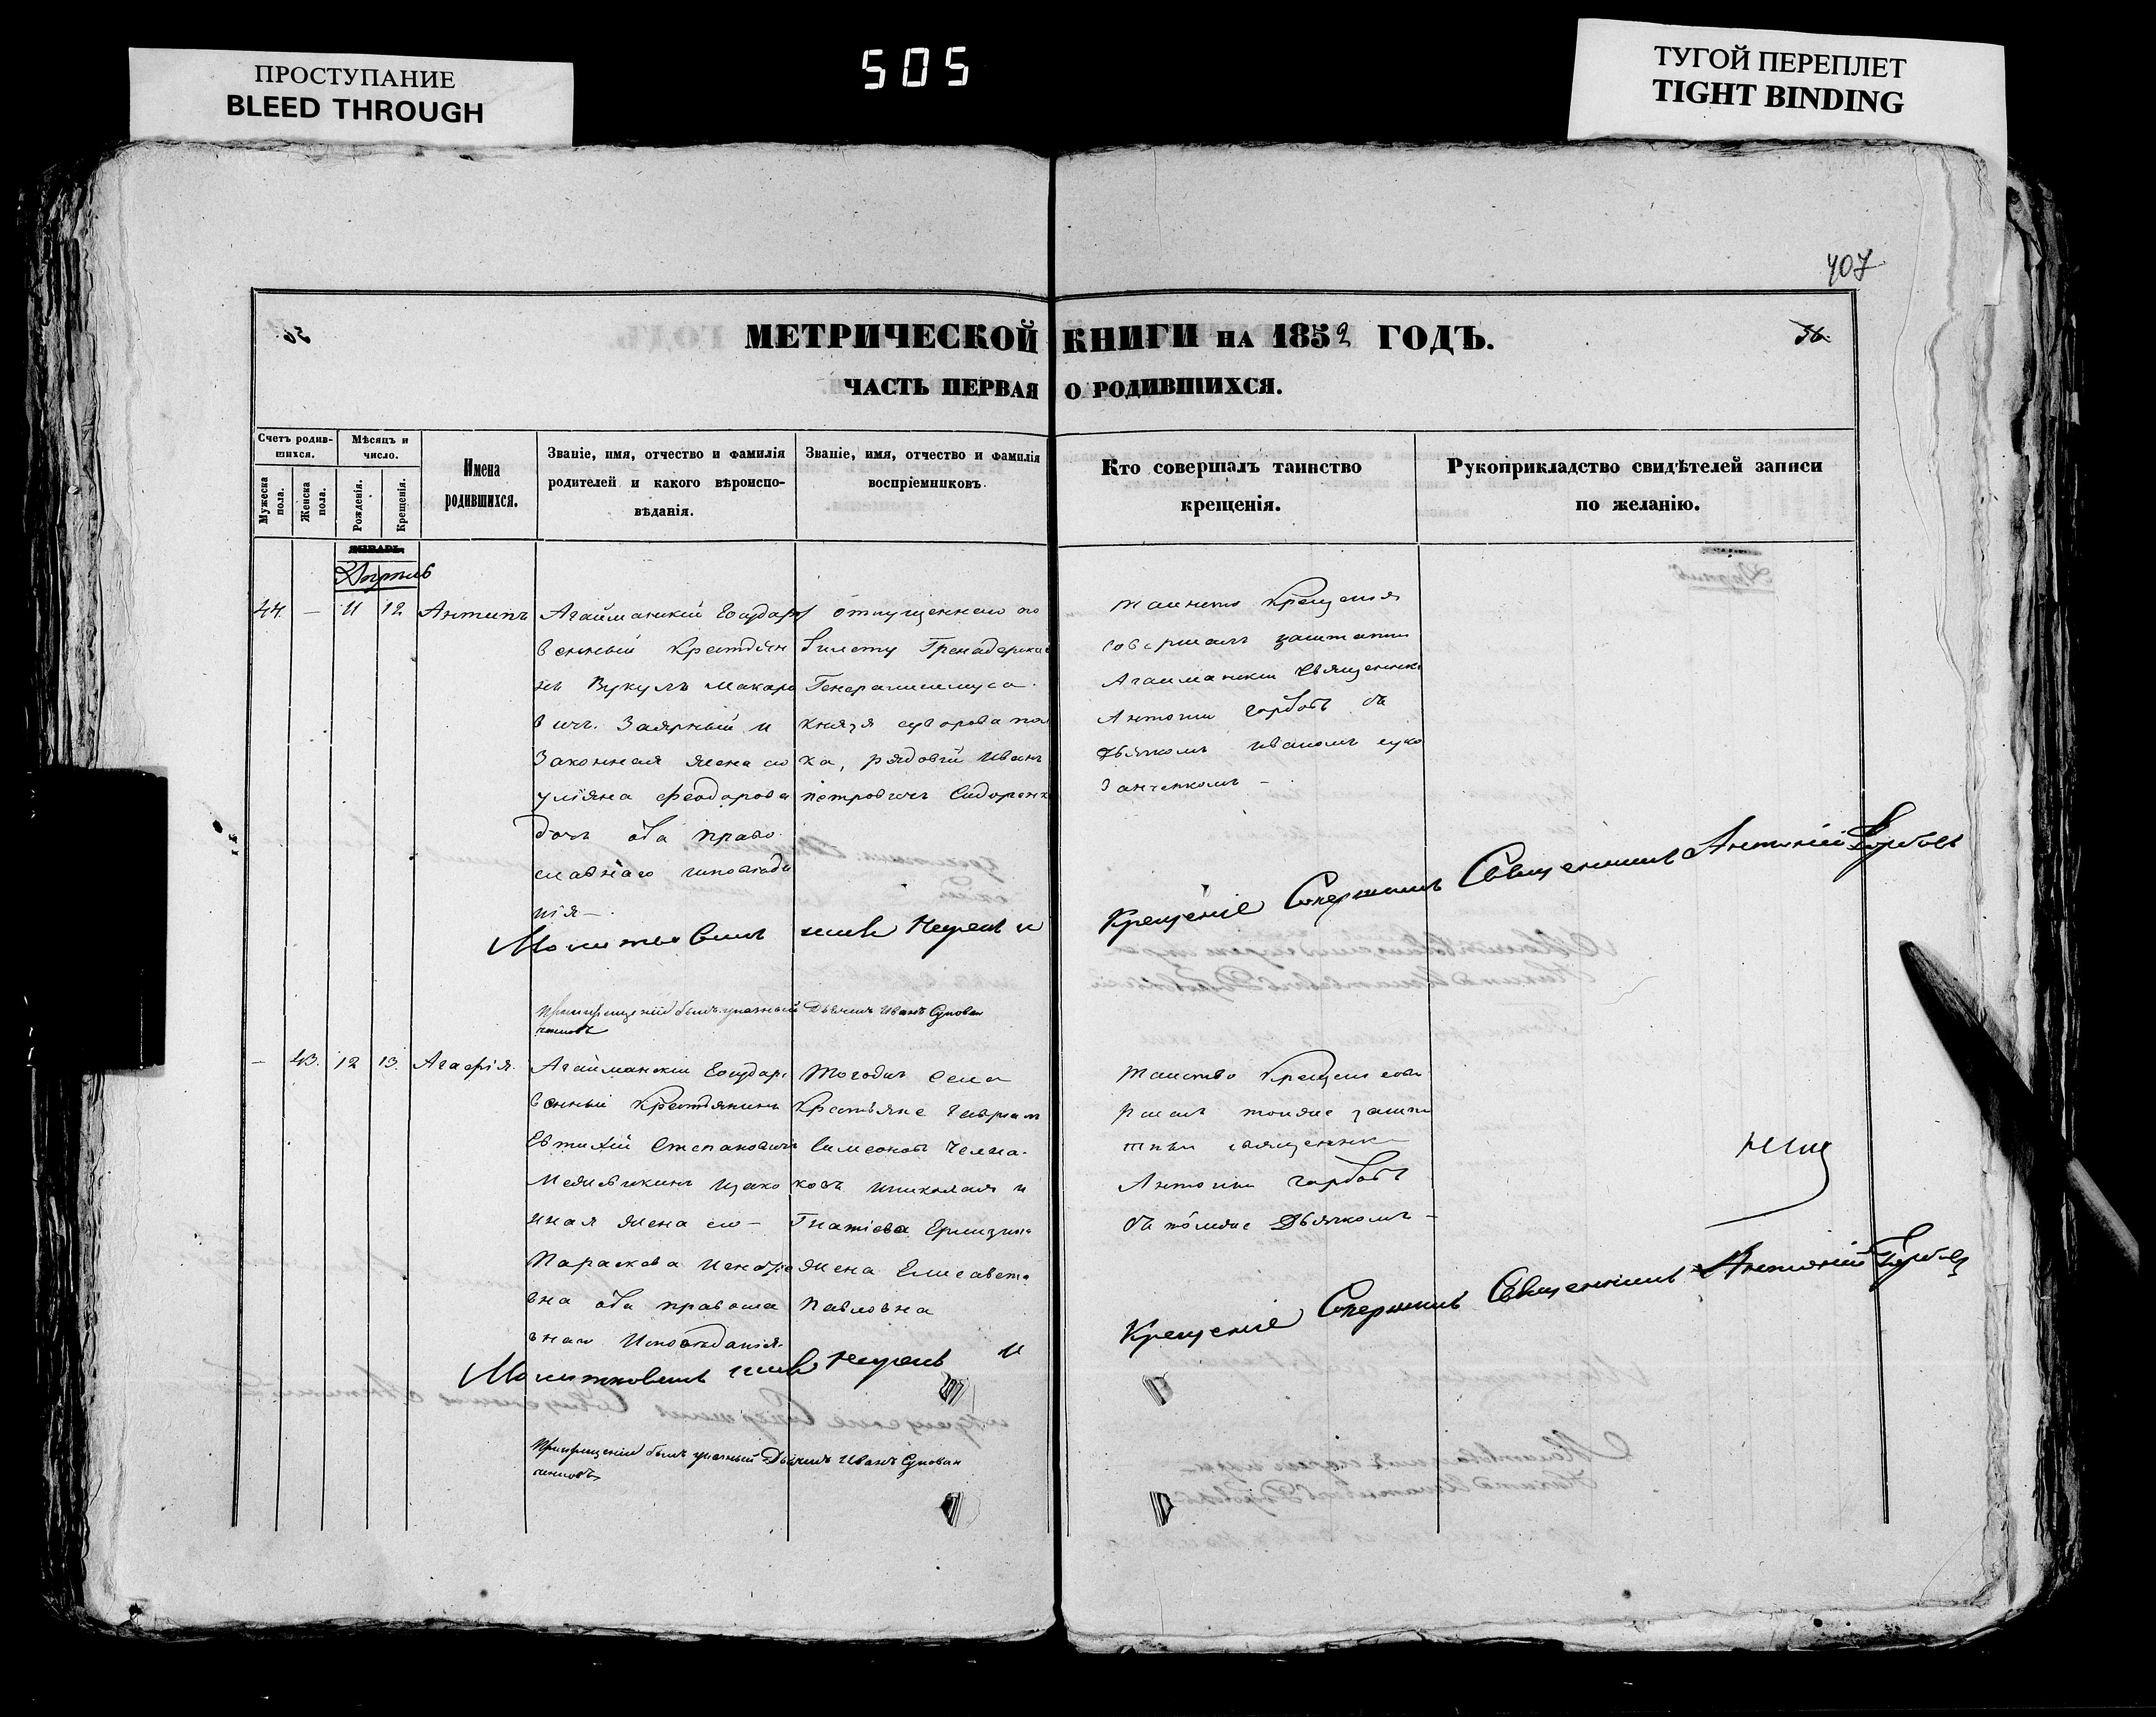 ПРОСТУПАНИЕ
BLEED THROUGH
505
ТУГОЙ ПЕРЕПЛЕТ
TIGHT BINDING
407
МЕТРИЧЕСКОЙ КНИГИ НА 1852 ГОДЪ.
36.
ЧАСТЬ ПЕРВАЯ О РОДИВШИХСЯ.
Счетъ родив-
шихся.
Мужеска пола.
Женска пола.
Мѣсяцъ и
число.
Рожденія.
Крещенія.
Имена
родившихся.
Званіе, имя, отчество и фамилія
родителей и какого вѣроиспо-
вѣданія.
Званіе, имя, отчество и фамилія
воспріемниковъ.
Кто совершалъ таинство
крещенія.
Рукоприкладство свидѣтелей записи
по желанію.
ЯНВАРЬ.
44. — 11 12 Антипъ
Агайманскій Государс
венный Крестьян
нъ Вукулъ Макаро
вичъ Заярный и
Законная жена его
Феодорова
дочь оба право
славнаго исповѣда
нія —.
отпущенный по
билету Гренадерска
Генералисимуса
князя суворова пол
ка, рядовый Иванъ
петровичъ Сидоренк
таинство Крещенія
совершалъ заштатны
Агайманскій Священникъ
Антоній Горбовъ съ
дьячкомъ иваномъ
Крещеніе Совершилъ Священникъ Антоній Горбовъ
При крещеніи былъ указный Дьячекъ Иванъ
— 43. 12 13. Агафія.
Агайманскій Государс
венный Крестьянинъ
Евтихій Степановичъ
изако
ная жена его —
Параскева
вна оба правосла
внаго Исповѣданія.
Тогожъ села
Крестьяне Гавріилъ
Симеоновъ
Игнатіева
жена Елисавета
Павловна
таинство Крещенія сове
ршалъ тойже зашта
тный священникъ
Антоній Горбовъ
съ тѣмже Дьячкомъ —
Крещеніе Совершилъ Священникъ Антоній Горбовъ
При крещеніи былъ указный Дьячекъ Иванъ